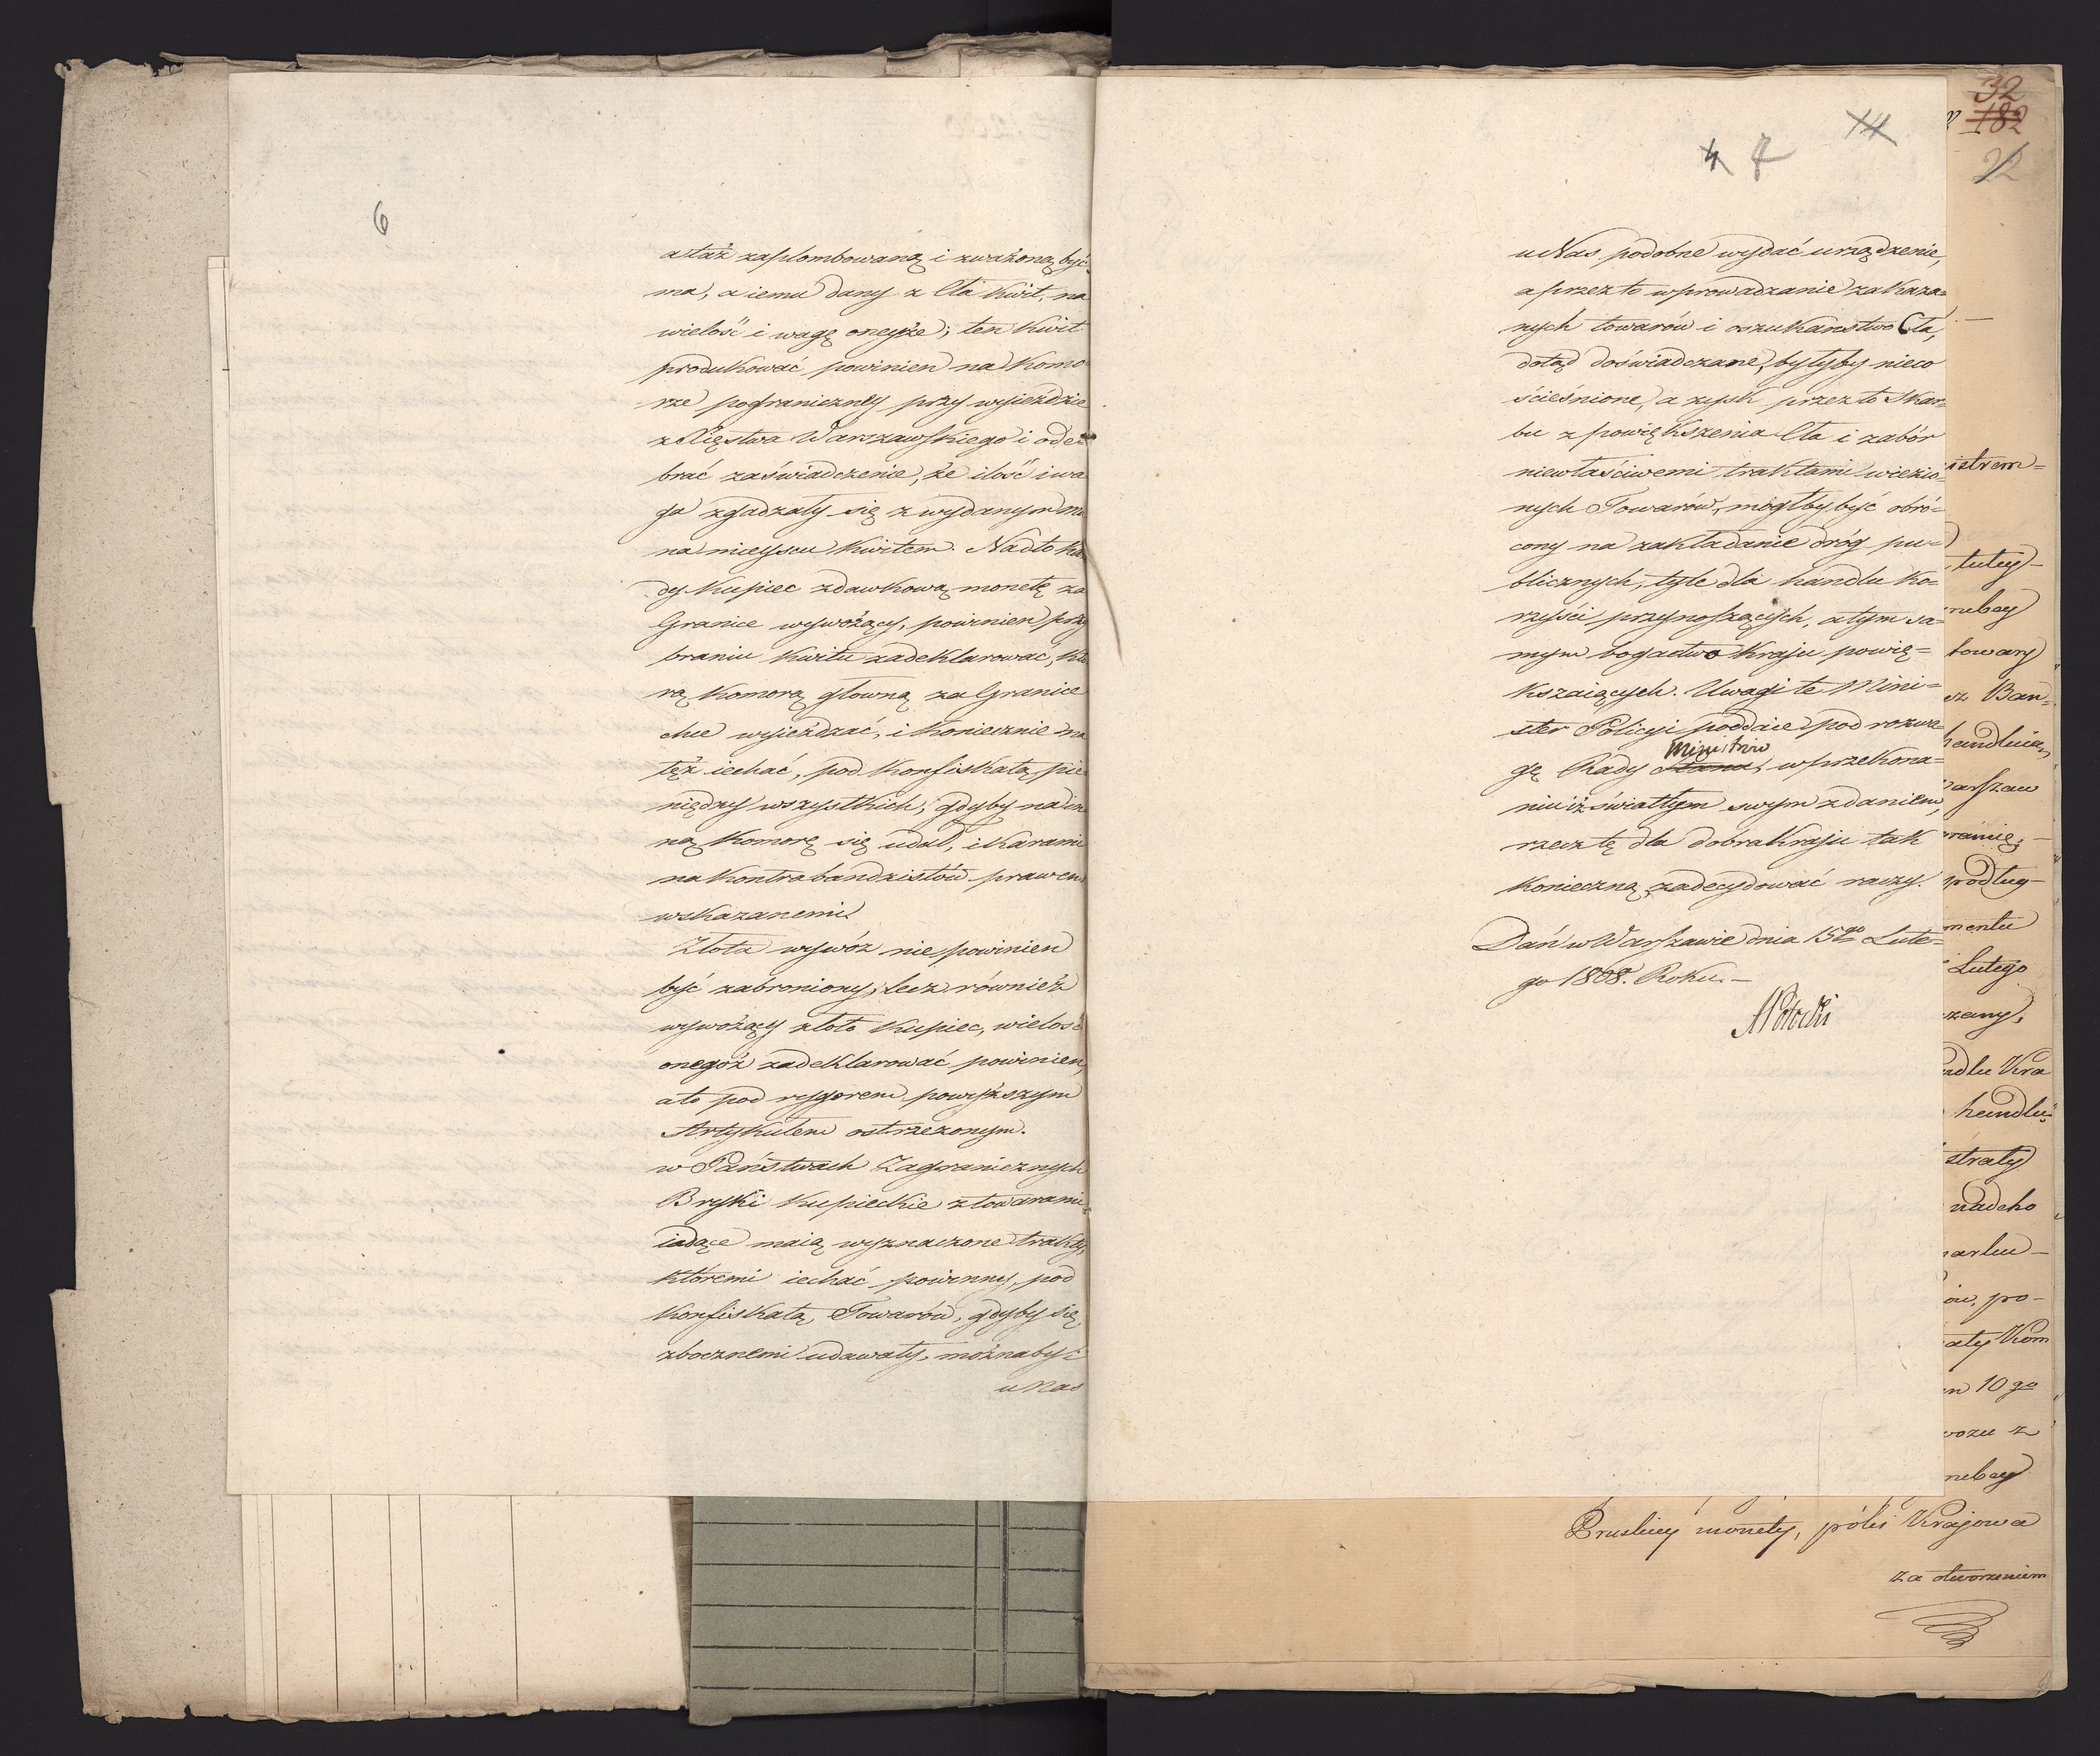 6
a taż zaplombowaną i zważoną być
ma, a iemu dany z Cła kwit, na
wielość i wagę oneyże; ten kwit
produkować powinien na Komo-
rze pograniczney przy wyieździe
z Xięstwa Warszawskiego i ode-
brać zaświadczenie, że ilość i wa
ga zgadzały się z wydanym mu
na mieyscu kwitem. Nadto ka
dy Kupiec zdawkową monetę za
Granice wywożący, powinien przy
braniu kwitu zadeklarować, któ
rą Komorą głowną za Granice
chce wyieżdzać, i koniecznie na
tęż iechać, pod konfiskatą pie
niędzy wszystkich, gdyby na in
ną Komorę się udał, i karami
na kontrabandzistów prawem
wskazanemi.
Złota wywóz nie powinien
być zabroniony; lecz również
wywożący złoto Kupiec, wielość
onegoż zadeklarować powinien,
a to pod rygorem powyższym
Artykułem ostrzeżonym.
w Państwach Zagranicznych
Bryki kupieckie z towarami
iadące maią wyznaczone trakty,
któremi iechać powinny, pod
konfiskatą Towarów, gdyby się
zbocznemi udawały, możnaby i
u Nas
4 7 14
32
182
22
u Nas podobne wydać urządzenie,
a przez to wprowadzanie zakaza-
nych towarów i oszukaństwo Cła,
dotąd doświadczane, byłyby nieco
ścieśnione, a zysk przez to Skar-
bu z powiększenia Cła i zabór
niewłaściwemi traktami wiezio-
nych Towarów, mógłby być obró-
cony na zakładanie dróg pu-
blicznych, tyle dla handlu ko-
rzyści przynoszących, a tym sa-
mym bogactwo Kraju powię-
kszaiących. Uwagi te Mini-
ster Policyi poddaie pod rozwa-
gę Rady Stanu, w przekona-
Ministrow
niu iż światłym swym zdaniem,
rzecz tę dla dobra Kraju tak
konieczną, zadecydować raczy.
Dań w Warszawie dnia 15go Lute-
go 1808. Roku.
APotocki
istrem=
tutey
nebay
towary
ez Ban-
handluią
warszaw
ranię;
podług
mentu
Lutego
zany,
ndlu Kra
handlu
straty
nadcho
arku
ów, po-
aty Kom
n 10go
wozu z
nebay
Pruskiey monety, póki Krajowa
za otworzeniem